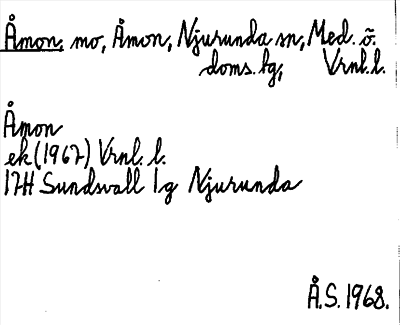 Åmon, mo, Åmon, Njurunda sn, Med. ö.
doms. lg, Vrnl. l.
Åmon
ek (1967) Vrnl. l.
17H Sundsvall 1g Njurunda
Å.S. 1968.